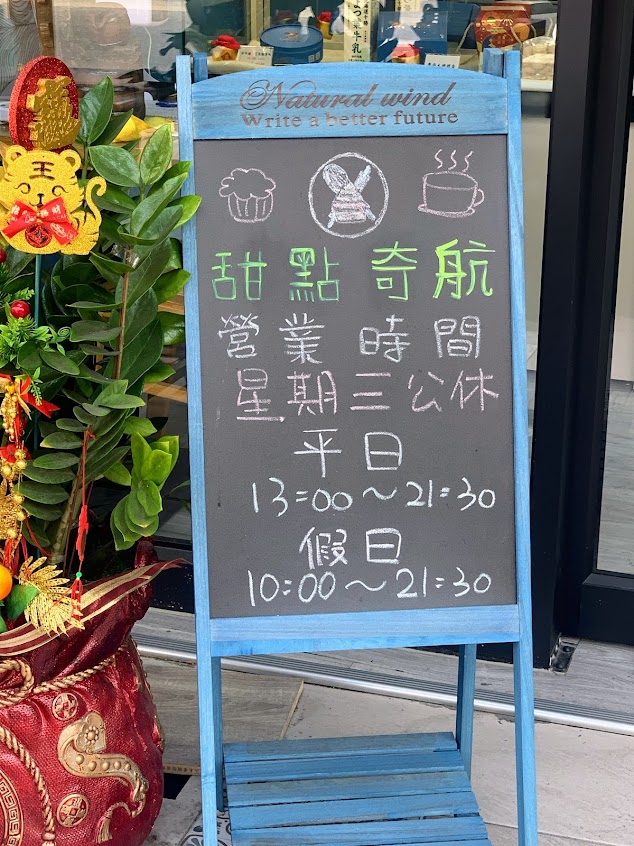 Natural wind
Write a better future
甜點奇航
營業時間
星期三公休
平日
13:00～21:30
假日
10:00～21:30
王